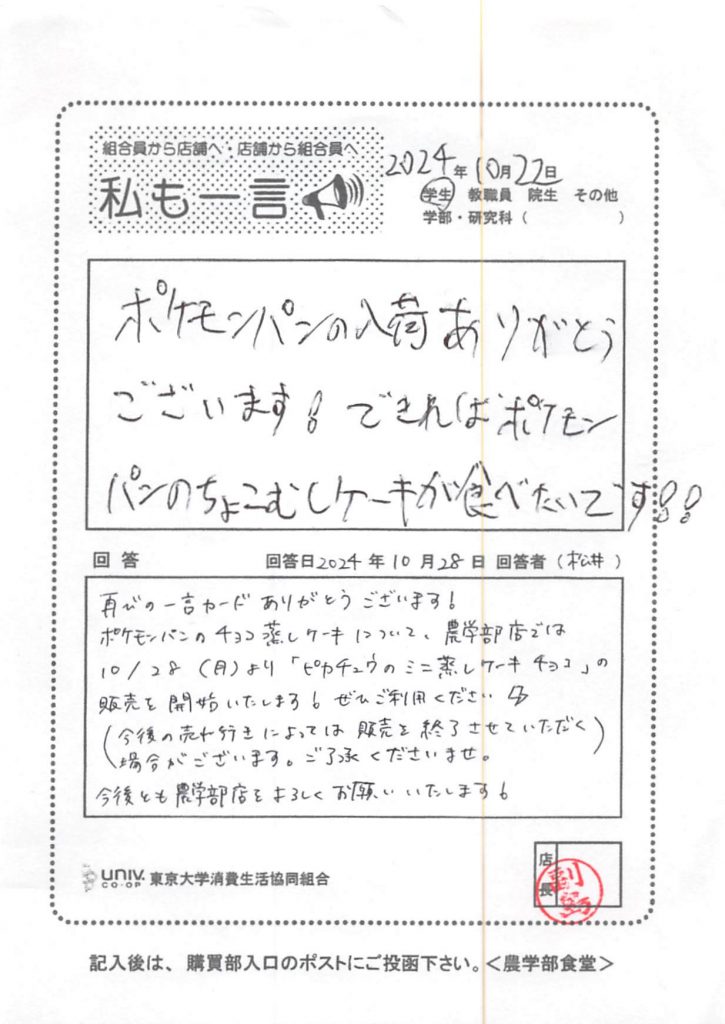 組合員から店舗へ・店舗から組合員へ
私も一言
2024年10月22日
学生 教職員 院生 その他
学部・研究科（ ）
ポケモンパンの入荷ありがとう
ございます！できればポケモン
パンのちょこむしケーキが食べたいです！！
回答 回答日2024年10月28日 回答者（松井）
再びの一言カードありがとうございます！
ポケモンパンのチョコ蒸しケーキについて、農学部店では
10/28（月）より「ピカチュウのミニ蒸しケーキ チョコ」の
販売を開始いたします！ぜひご利用ください
（今後の売れ行きによっては販売を終了させていただく
場合がございます。ご了承くださいませ。）
今後とも農学部店をよろしくお願いいたします！
店長
UNIV. CO-OP 東京大学消費生活協同組合
記入後は、購買部入口のポストにご投函下さい。＜農学部食堂＞